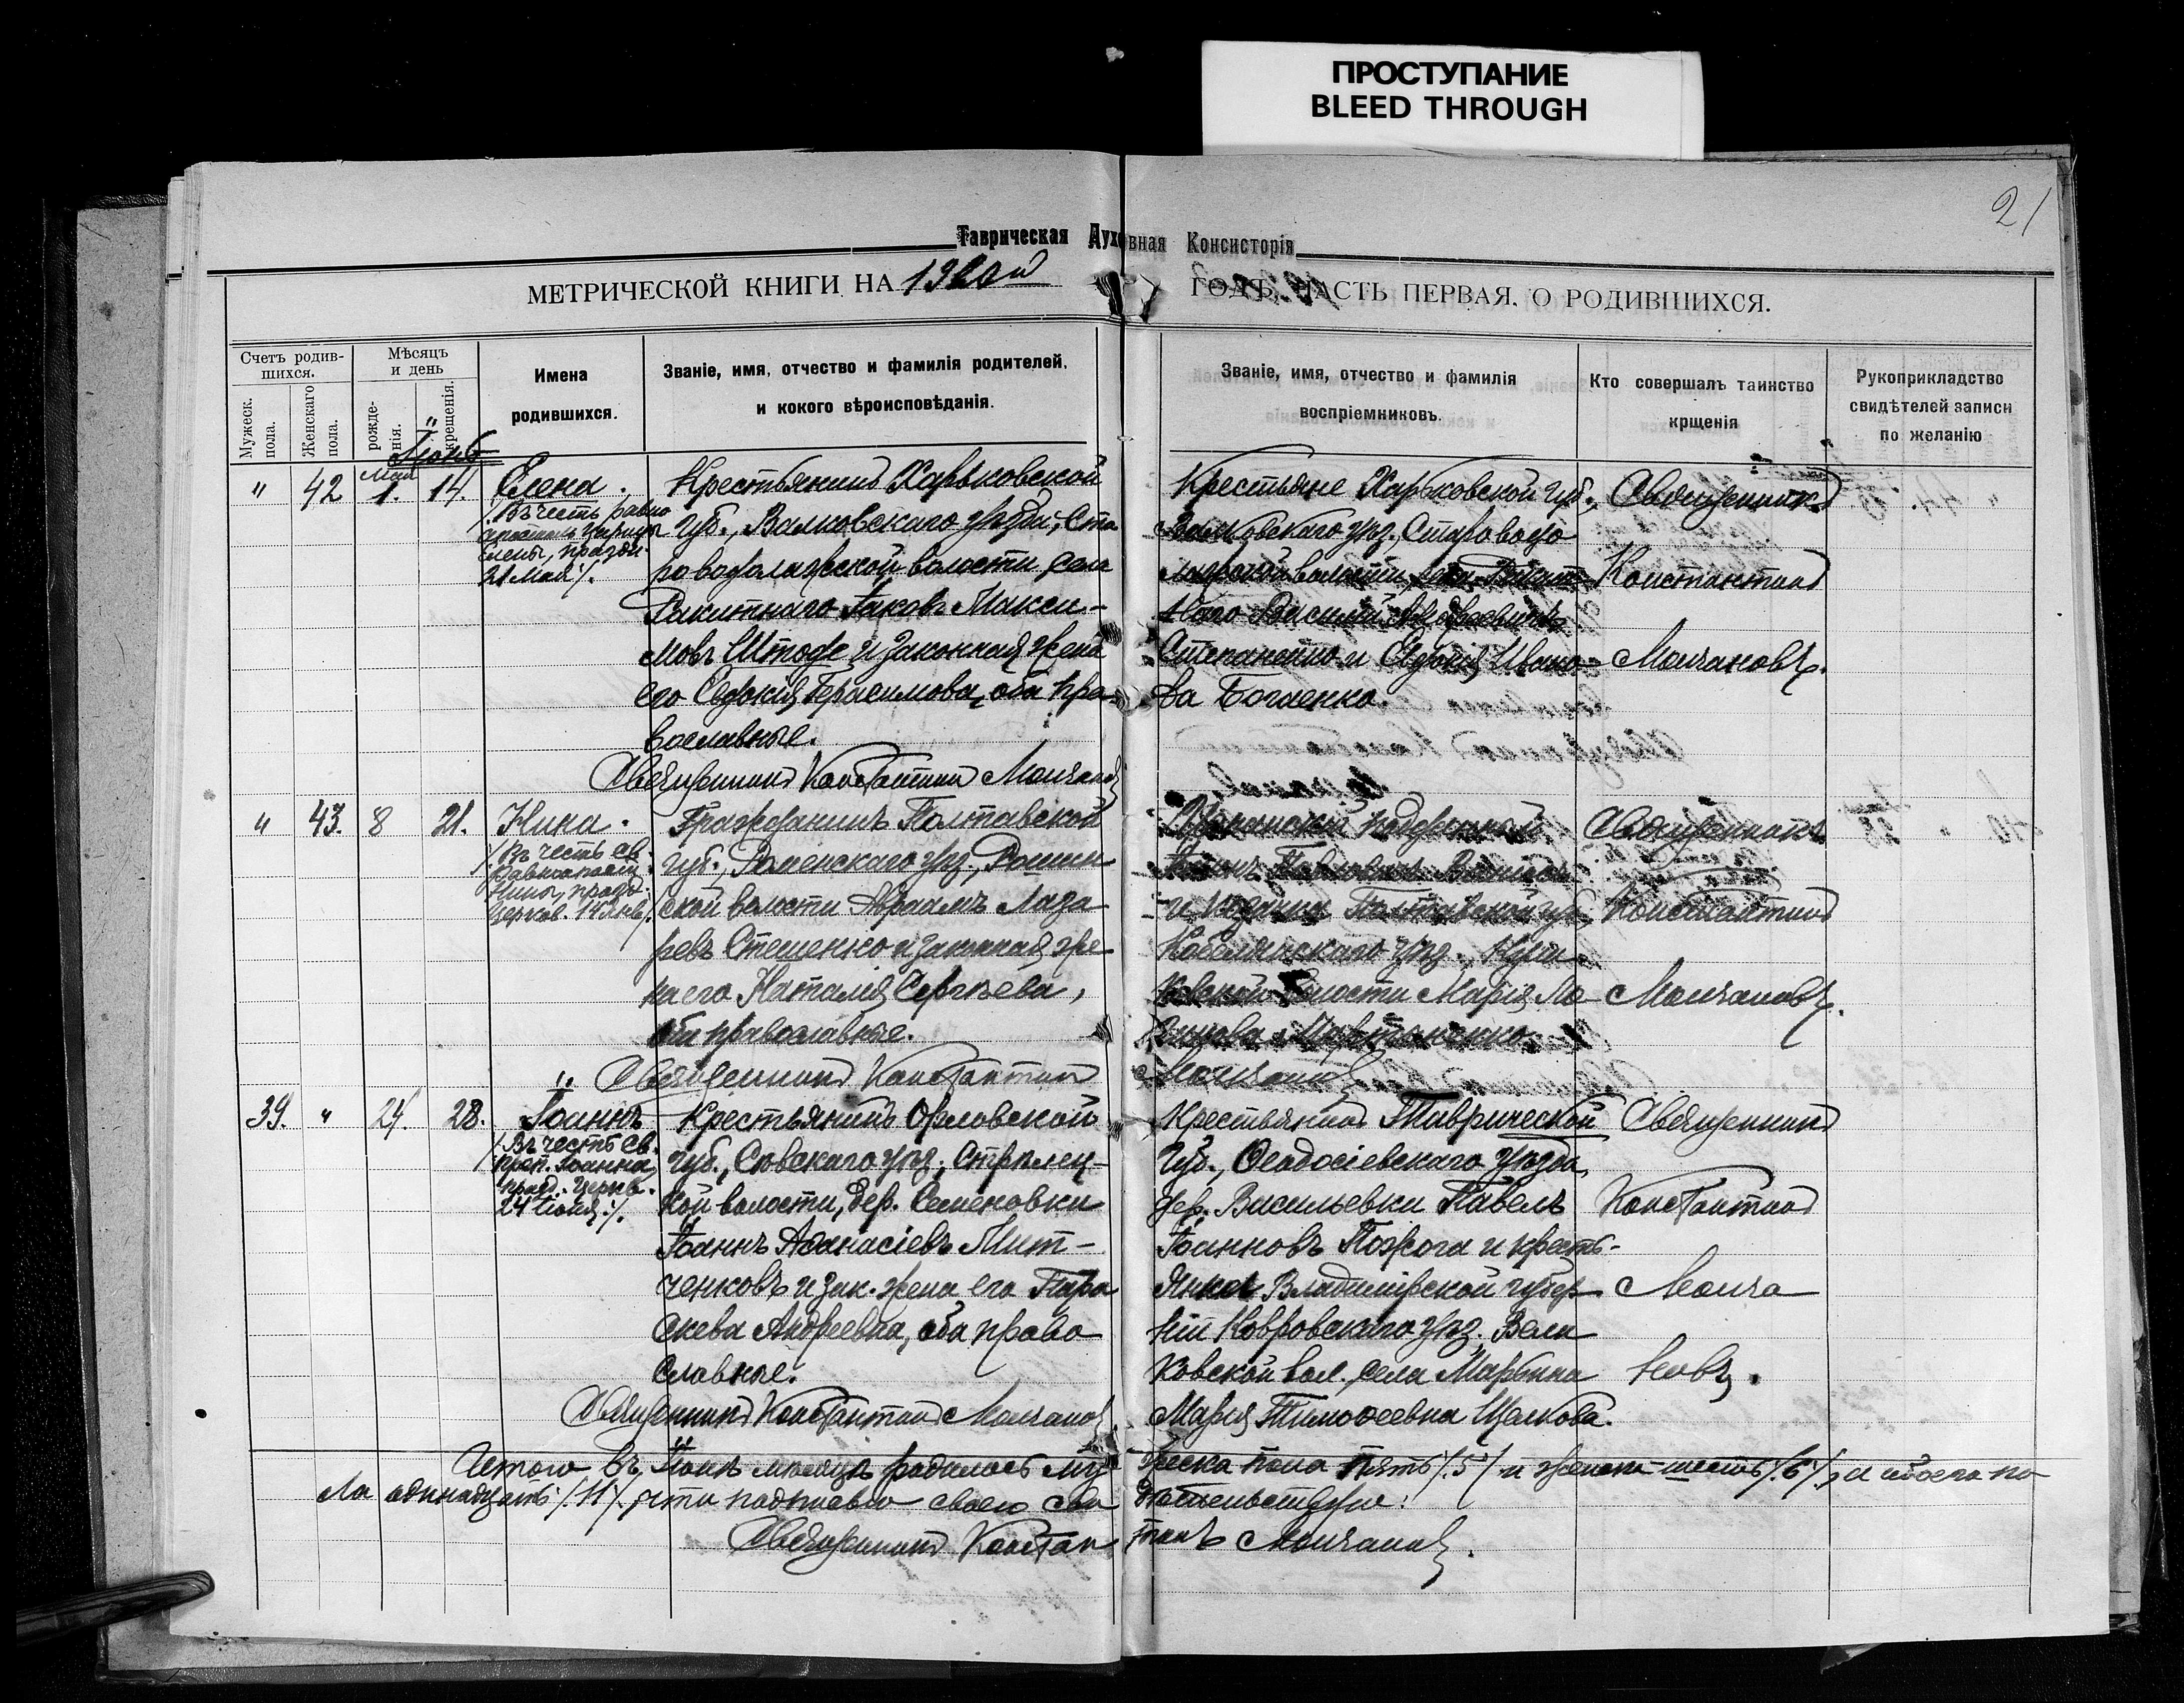 ПРОСТУПАНИЕ
BLEED THROUGH
21
Таврическая Духовная Консисторія
МЕТРИЧЕСКОЙ КНИГИ НА 1920й ГОДЪ, ЧАСТЬ ПЕРВАЯ, О РОДИВШИХСЯ.
Счетъ родив-
шихся.
Мужеск.
пола.
Женскаго
пола.
Мѣсяцъ
и день
рожде-
нія.
крещенія.
Имена
родившихся.
Званіе, имя, отчество и фамилія родителей,
и кокого вѣроисповѣданія.
Званіе, имя, отчество и фамилія
воспріемниковъ.
Кто совершалъ таинство
крщенія
Рукоприкладство
свидѣтелей записи
по желанію
Іюнь
" 42 Мая 1. 14.
Елена.
/. Въ честь равно
апостол. Царицы
Елены, праздн.
21 Мая /.
Крестьянинъ Харьковской
губ., Валковскаго уѣзда, Ста
роводолажской волости села
Ракитнаго Іаковъ Макси-
мовъ Штофъ и законная жена
его Евдокія Герасимова, оба пра-
вославные.
Крестьяне Харьковской губ.,
Валковскаго уѣзд. Старовадо
лажской волости, села Ракит
наго Василій
Степаненко и Евдокія Ивано-
ва Богаенко.
Священникъ
Константинъ
Молчановъ.
Священникъ Константинъ Молчановъ
" 43. 8 21.
Нина.
/. Въ честь св.
Равноапост.
Нины, празд.
Церков. 14 Янв./.
Гражданинъ Полтавской
губ., Роменскаго уѣзд.,
ской волости Авраамъ Лаза
ревъ Стешенко и законная же
на его Наталія Сергѣева,
оба православные.
Павловичъ
и Полтавской губ.,
Кобелякскаго уѣзд.,
волости Марія Ло
гинова Мартыненко.
Священникъ
Константинъ
Молчановъ.
Священникъ Константинъ Молчановъ
39. " 24. 28.
Іоаннъ
/. Въ честь св.
прор. Іоанна,
празд. Церков.
24 Іюня /.
Крестьянинъ Орловской
губ., Сѣвскаго уѣзд., Стрѣлец-
кой волости, дер. Семеновки
Іоаннъ Аѳанасіевъ Мит-
ченковъ и зак. жена его Пара
скева Андреевна, оба право
славные.
Крестьянинъ Таврической
Губ., Ѳеодосіевскаго уѣзда,
дер. Васильевки Павелъ
Іоанновъ Пожога и кресть-
янка Владимірской губер
ніи Ковровскаго уѣзд. Вели
ковской вол. села Марьина
Марія Тимоѳеевна Щелкова.
Священникъ
Константинъ
Молча
новъ.
Священникъ Константинъ Молчановъ
Итого въ Іюнѣ мѣсяцѣ родилось му жеска пола пять /.5/ и женска шесть /.6/, а обоего по
ла одинадцать /.11/. что подписью своею сви дѣтельствую:
Священникъ Констан тинъ Молчановъ.